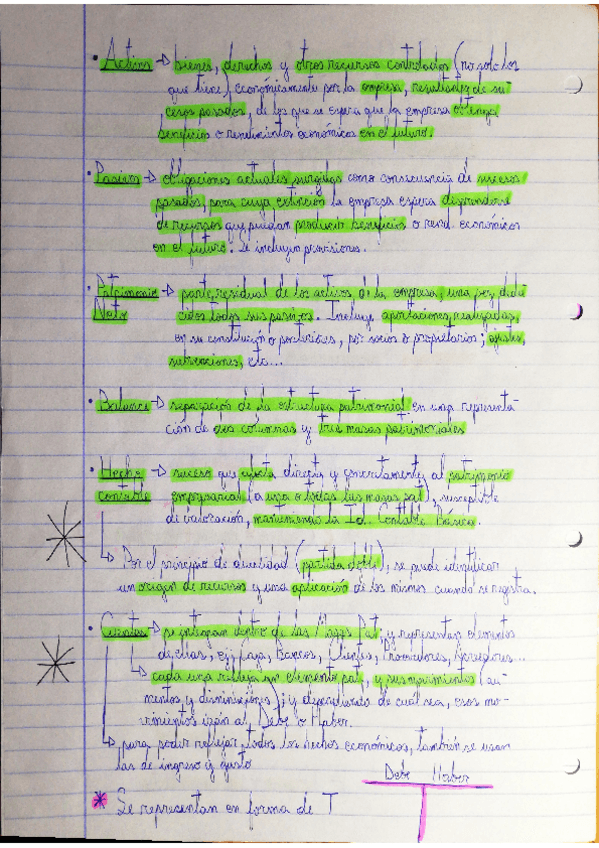 • Activos → bienes, derechos y otros recursos controlados (no solo los
que tiene) económicamente por la empresa, resultantes de su-
cesos pasados, de los que se espera que la empresa obtenga
beneficios o rendimientos económicos en el futuro.
• Pasivos → obligaciones actuales surgidas como consecuencia de sucesos
pasados, para cuya extinción la empresa espera desprenderse
de recursos que puedan producir beneficios o rend. económicos
en el futuro. Se incluyen provisiones.
• Patrimonio → parte residual de los activos de la empresa, una vez dedu-
Neto cidos todos sus pasivos. Incluye aportaciones realizadas,
en su constitución o posteriores, por socios o propietarios; ajustes,
subvenciones, etc...
• Balance → separación de la estructura patrimonial en una representa-
ción de dos columnas y tres masas patrimoniales
• Hecho → suceso que afecta directa y concretamente al patrimonio
contable empresarial (a una o todas las masas pat), susceptible
de valoración, manteniendo la Id. Contable Básica.
↳ Por el principio de dualidad (partida doble), se puede identificar
un origen de recursos y una aplicación de los mismos cuando se registra.
• Cuentas → se integran dentro de las Masas Pat. y representan elementos
de ellas, ej: Caja, Bancos, Clientes, Proveedores, Acreedores...
↳ cada una refleja un elemento pat, y sus movimientos (au-
mentos y disminuciones); y dependiendo de cuál sea, esos mo-
vimientos irán al Debe o Haber.
↳ para poder reflejar todos los hechos económicos, también se usan
las de ingreso y gasto
Debe Haber
* Se representan en forma de T